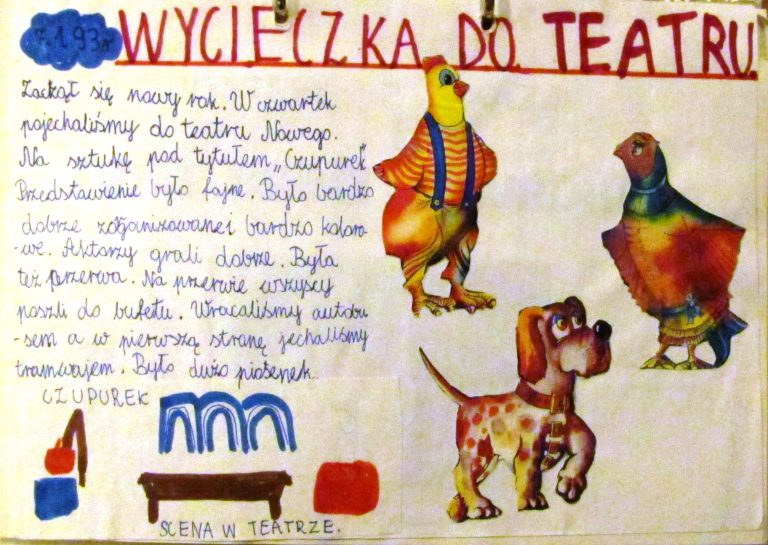 7.1.93r WYCIECZKA DO TEATRU
Zaczął się nowy rok. W czwartek
pojechaliśmy do teatru Nowego.
Na sztukę pod tytułem „Czupurek"
Przedstawienie było fajne. Było bardzo
dobrze zorganizowane i bardzo koloro
-we. Aktorzy grali dobrze. Była
też przerwa. Na przerwie wszyscy
poszli do bufetu. Wracaliśmy autobu
-sem a w pierwszą stronę jechaliśmy
tramwajem. Było dużo piosenek.
CZUPUREK
SCENA W TEATRZE.